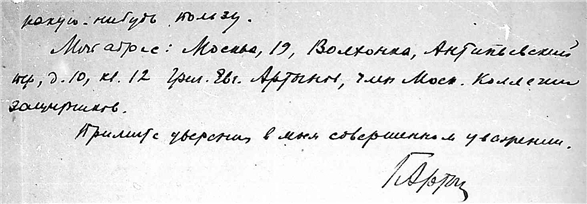 какую-нибудь пользу.
Мой адрес: Москва, 19, Волхонка, Антипьевский
пер, д. 10, кв. 12 Григ. Евг. Артынов, член Моск. Коллегии
защитников.
Примите уверения в моем совершенном уважении.
ГАрты